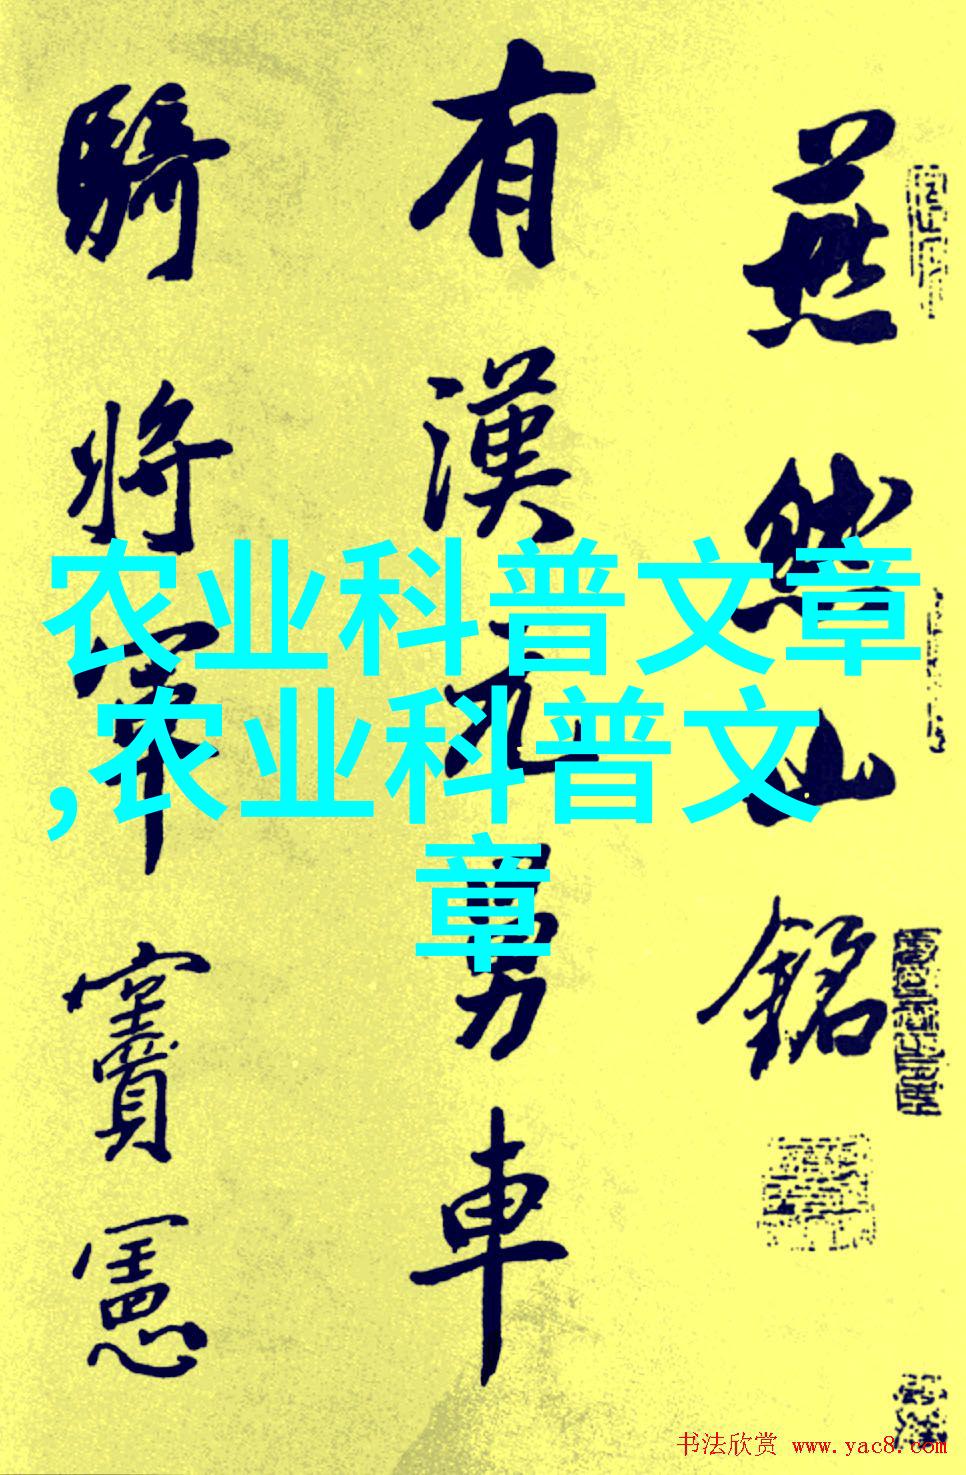 燕然山銘
有漢元舅車
騎將軍竇憲
农业科普文章
,农业科普文
章
书法欣赏 www.yac8.com